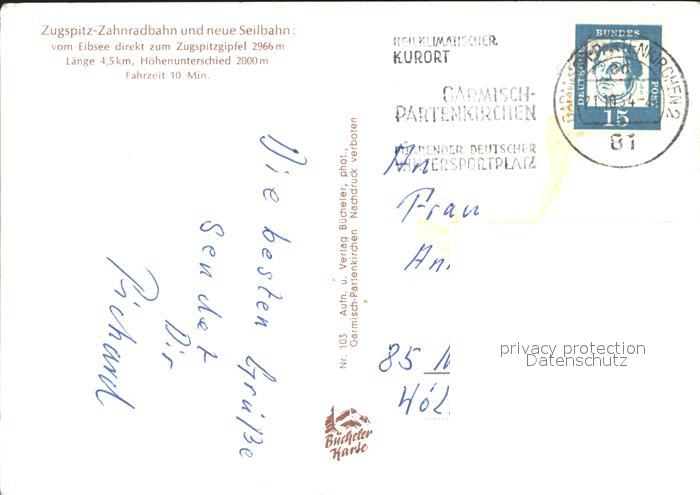 Zugspitz-Zahnradbahn und neue Seilbahn:
vom Eibsee direkt zum Zugspitzgipfel 2966 m
Länge 4,5 km, Höhenunterschied 2000 m
Fahrzeit 10 Min.
Die besten Grüße
sendet
Dir
Richard
Nr. 103 Aufn. u. Verlag Bücheler, phot.,
Garmisch-Partenkirchen Nachdruck verboten
Bücheler
Karte
HEILKLIMATISCHER
KURORT
GARMISCH-
PARTENKIRCHEN
FÜHRENDER DEUTSCHER
WINTERSPORTPLATZ
DEUTSCHE
BUNDES
POST
15
GARMISCH-PARTENKIRCHEN 2
81
An
Frau
An
85 N
Wöl
privacy protection
Datenschutz